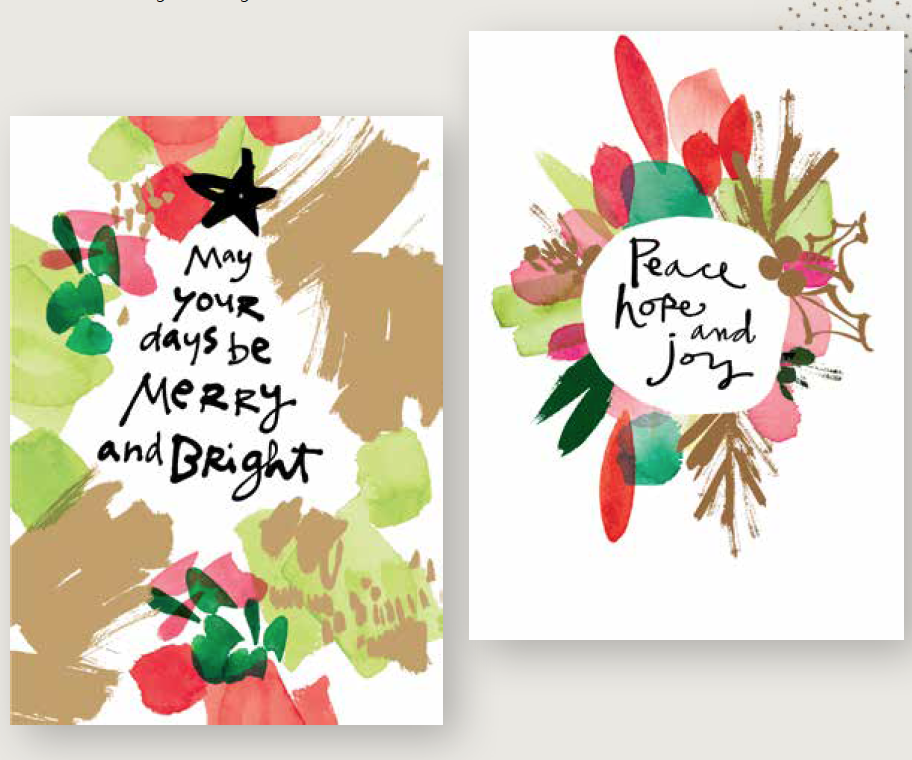 May
your
days be
Merry
and Bright
Peace
hope
and
joy